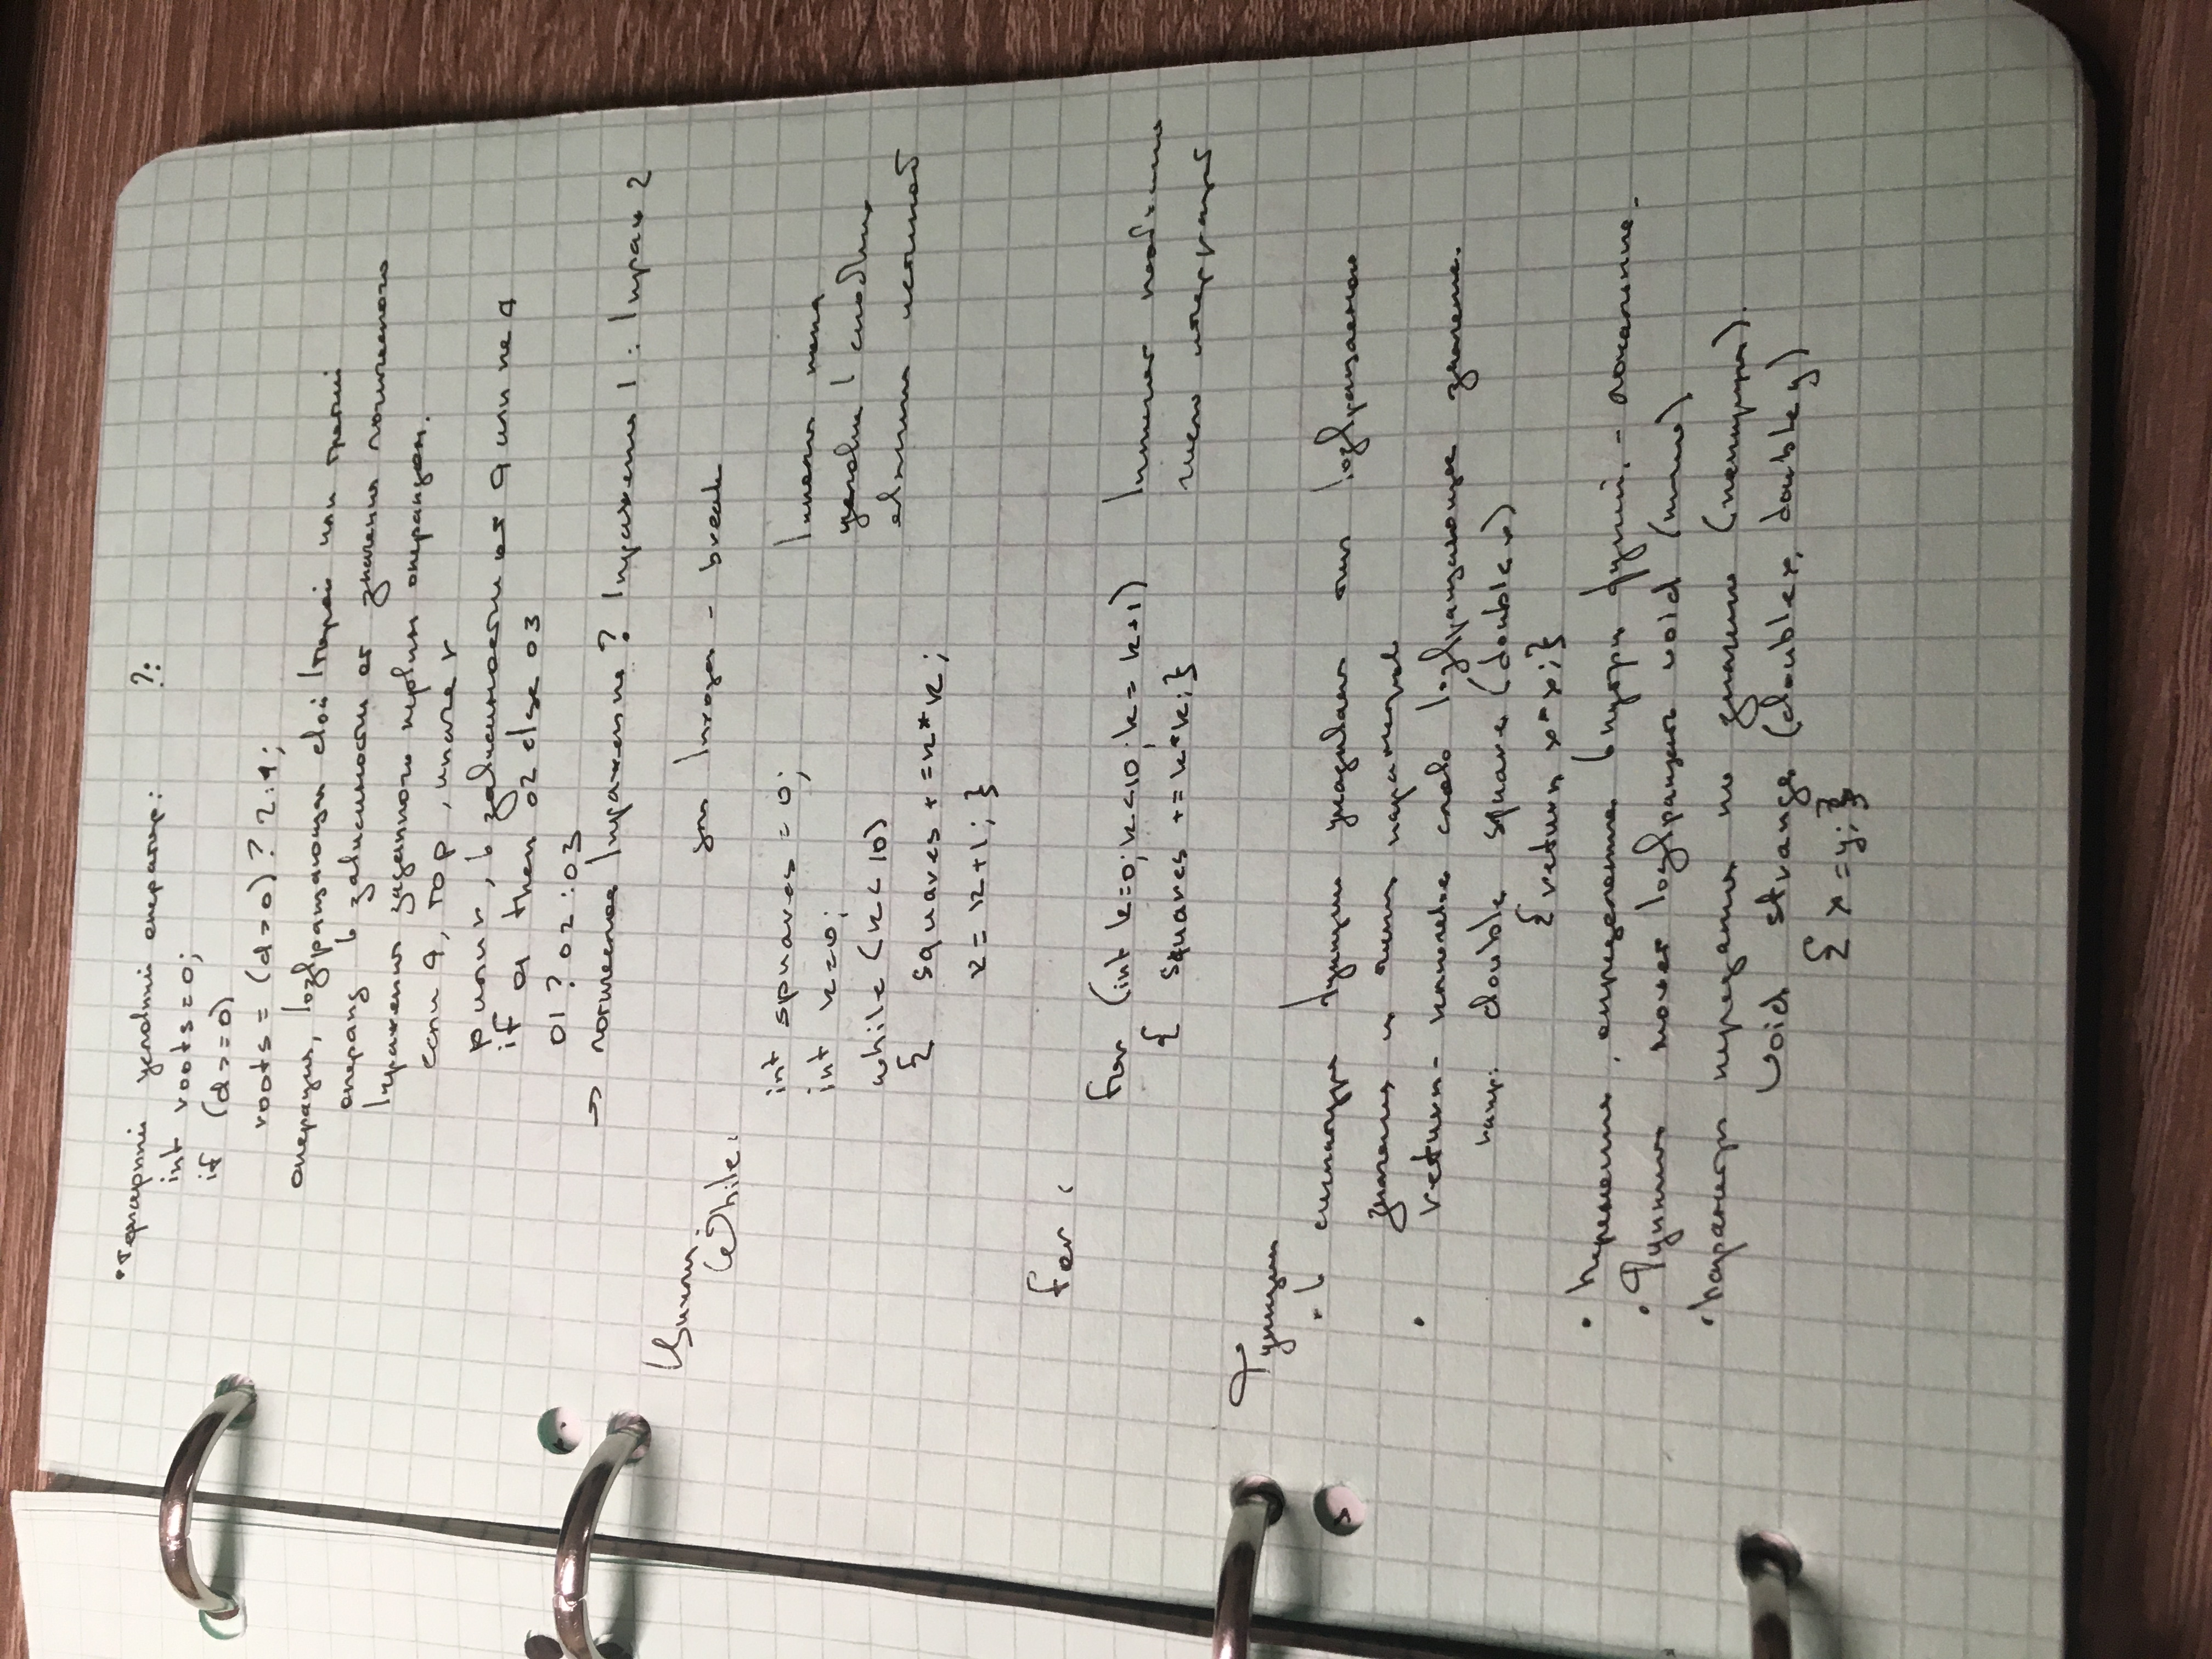 • Тернарный условный оператор: ?:
int roots = 0;
if (d >= 0)
roots = (d > 0) ? 2 : 1;
операция, возвращающая свой второй или третий
операнд в зависимости от значения логического
выражения заданного первым операндом.
если q, то p, иначе r
p или r, в зависимости от q или не q
if o1 then o2 else o3
o1 ? o2 : o3
→ логическое выражение ? выражение 1 : выраж 2
Циклы.
для выхода - break
While:
int squares = 0;
int k = 0; выполн пока
while (k < 10) условие в скобках
{ squares += k*k; является истиной
k = k+1; }
for:
for (int k=0; k<10; k = k+1) выполняет необходимо
{ squares += k*k; } число итераций
Функции
• в сигнатуре функции указывается тип возвращаемого
значения и типы параметров
• return - ключевое слово возвращающее значение.
напр: double square (double x)
{ return x*x; }
• Переменные, определенные внутри функций, - локальные.
• Функция может возвращать void (ничего)
• Параметры передаются по значению (копируются).
void strange (double x, double y)
{ x = y; }